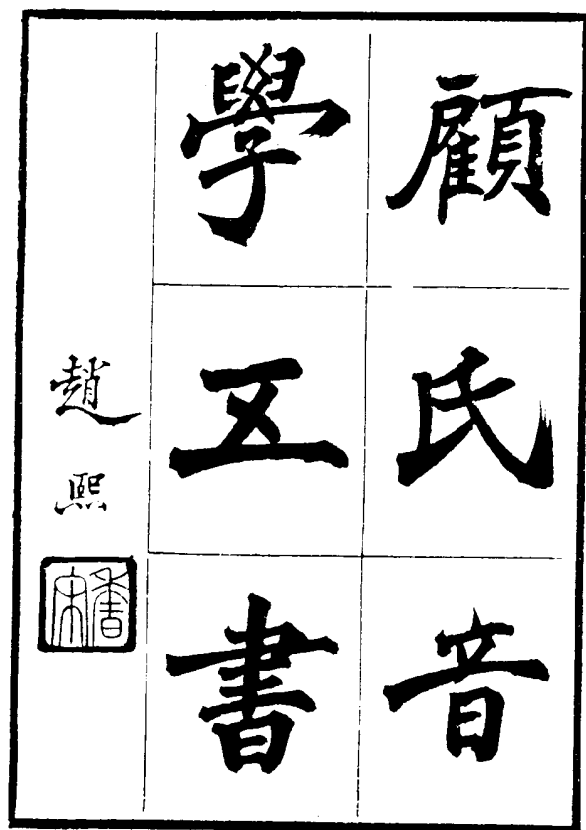 顧氏音
學五書
趙熙
香宋